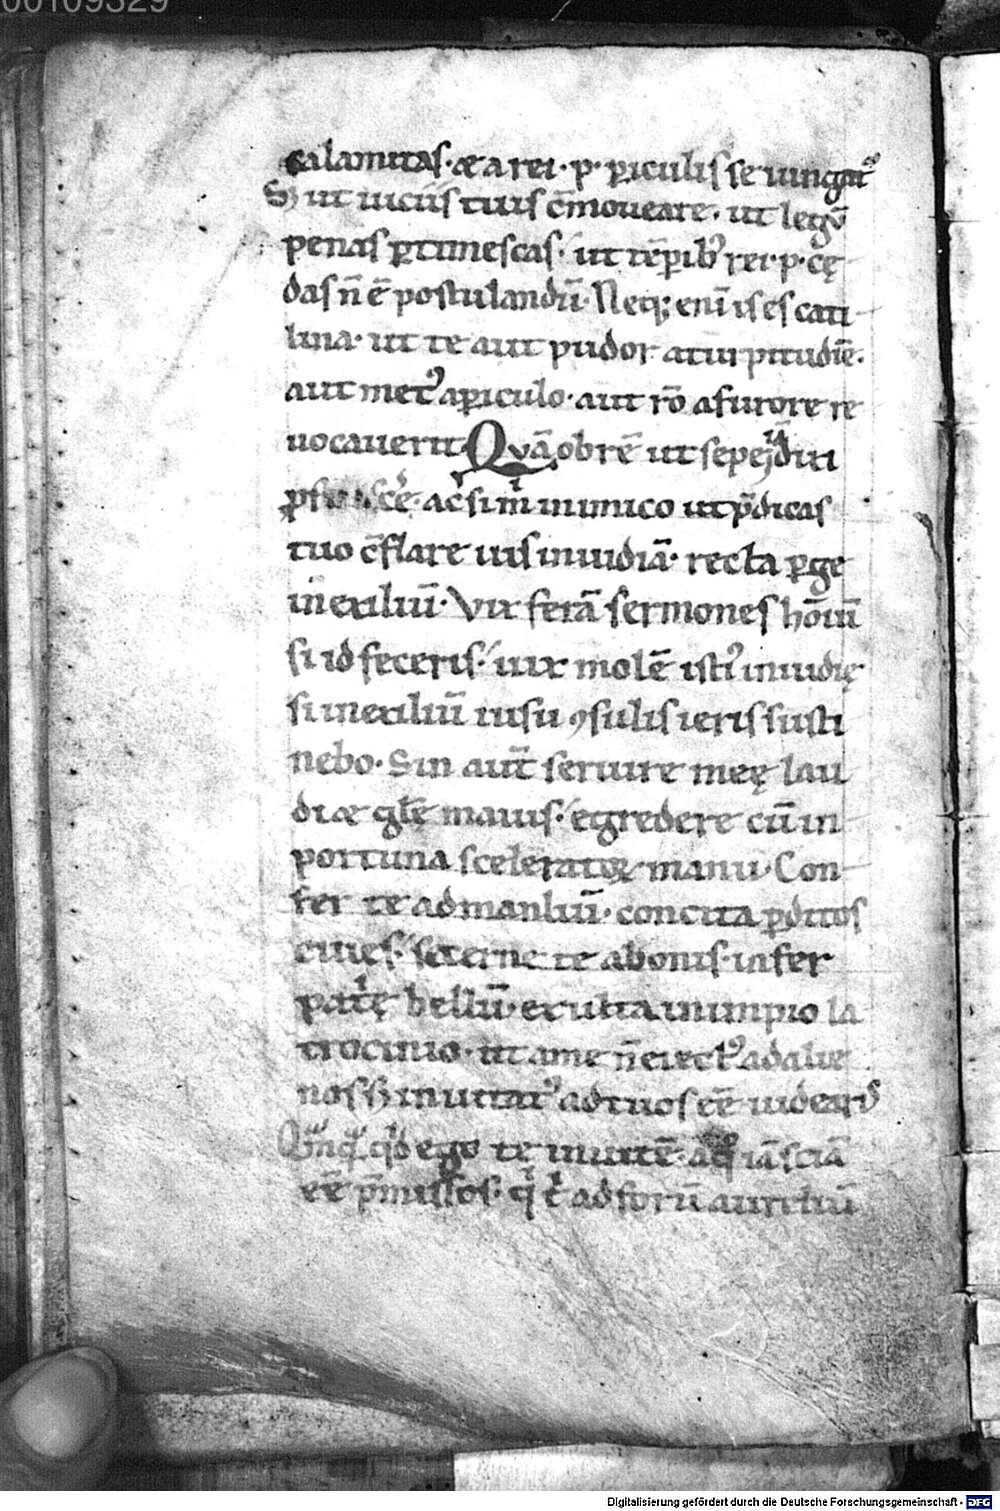 00109329
calamitas· & a rei· p· ꝑiculis se iungat᷑
Sꝫ ut uiciis tuis c̄moueare· ut legū
penas ꝑtimescas· ut tēꝑibꝰ rei· p· cę
das n̄ ē postulandū· Neq; eni ̄ is es cati
lina· ut te aut pudor aturpitudīe·
aut metꝰ aꝑiculo· aut rō afurore re
uocauerit Quā obrē ut sepe iā dixi
ꝓfi cē· ac si m̍ inimico ut p̄dicas
tuo c̄flare uis inuidiā· recta ꝑge
in exiliū· Vix ferā sermones hōiū
si id feceris· uix molē istiꝰ inuidię
si inexiliū iusu ꝯsulis ieris susti
nebo· Sin aut̄ seruire meę lau
di & gl̄ę mauis· egredere cū in
portuna sceleratoꝝ manu· Con
fer te ad manliū· concita ꝑditos
ciues· secerne te abonis· infer
pat̍ę bellū· exulta inimpio la
trocinio· ut ame n̄ eiectꝰ adalie
nos sꝫ inuitatꝰ adtuos eē uidearis
Qm̄qᷓ qͥd ego te inuitē· aqͦ iā sciā
eē p̄missos· qͥ t̍ ad forū aureliū
Digitalisierung gefördert durch die Deutsche Forschungsgemeinschaft - DFG